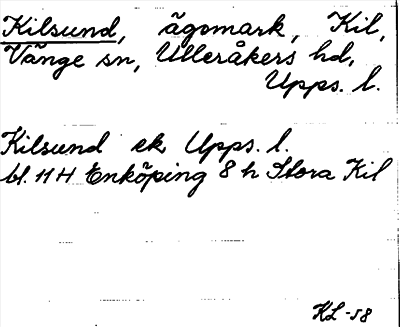 Kilsund, ägomark, Kil,
Vänge sn, Ulleråkers hd,
Upps. l.
Kilsund ek Upps. l.
bl. 11 H Enköping 8 h Stora Kil
KL -58